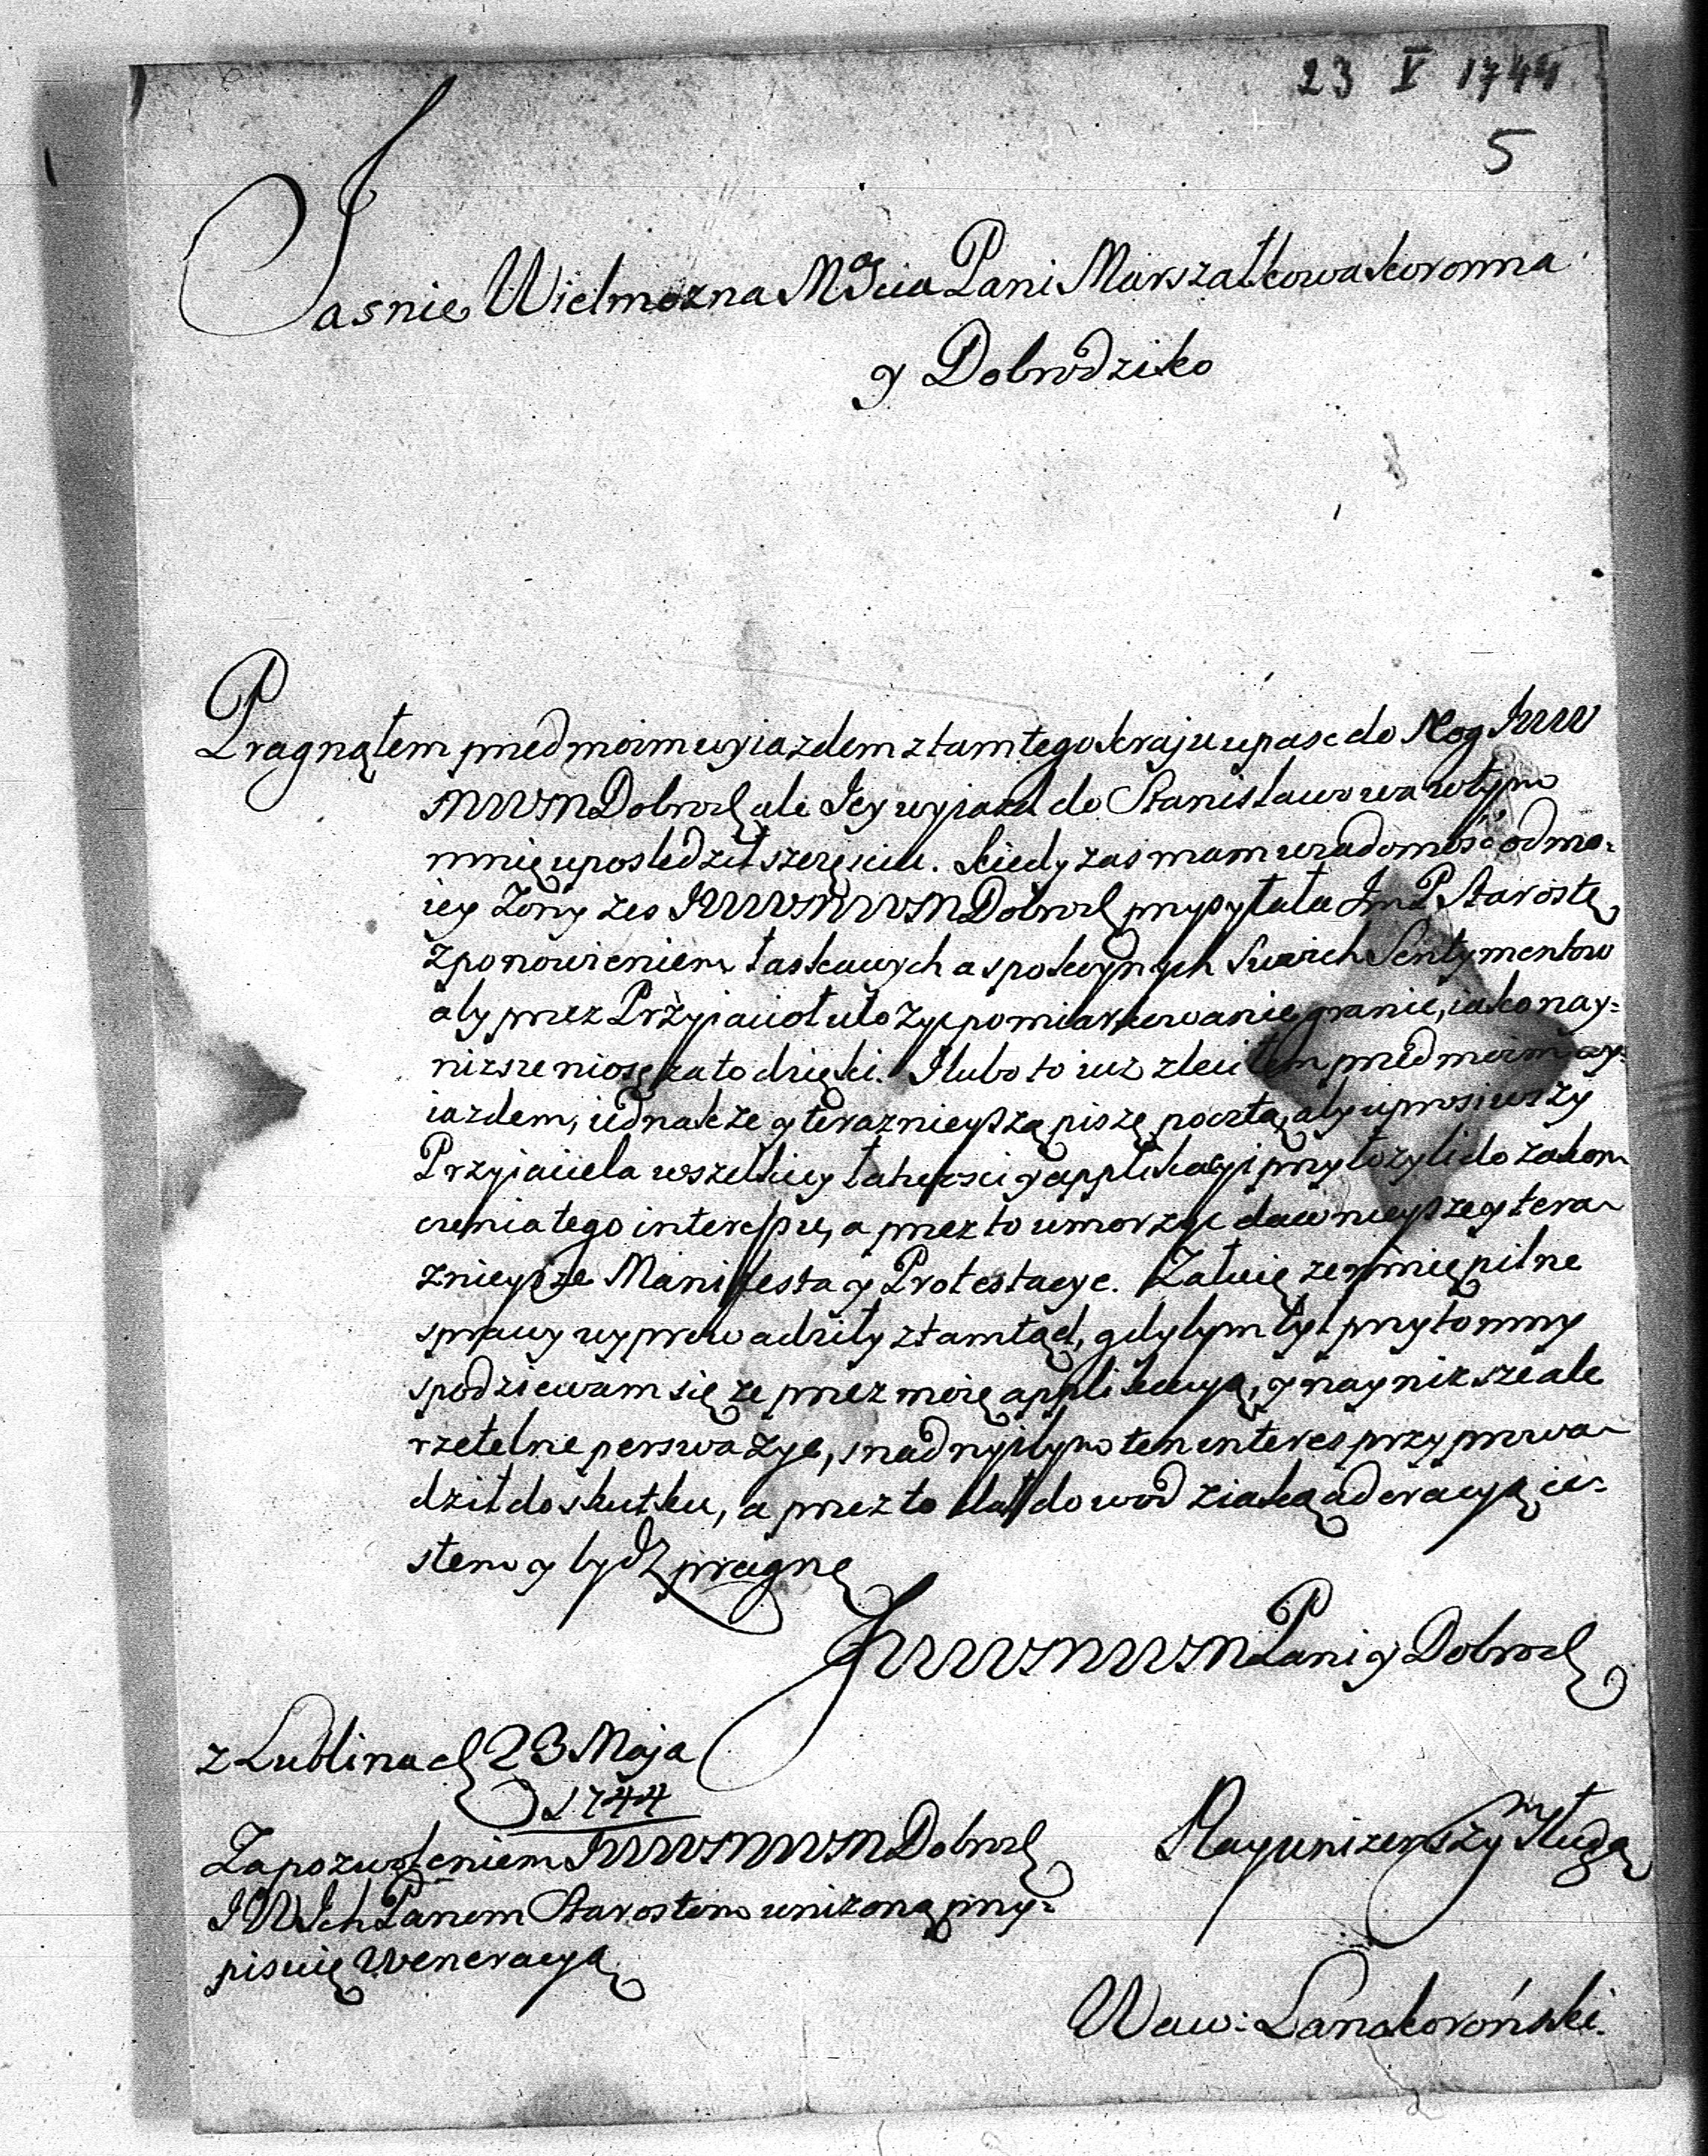 23 V 1744
5
Jasnie Wielmozna Mscia Pani Marszałkowa koronna
y Dobrodziko
Pragnąłem przed moim wyiazdem z tamtego kraju upasc do Nog JWW
MWM Dobrod ale Jey wyiazd do Stanisławowa w tym
mnie uposledził szczęsciu. kiedy zas mam wiadomość od mo-
iey Zony zes JWWMMWM Dobrod przysyłała Jm P. Starostę
z ponowieniem łaskawych a spokoynych Swoich Sentymentow
aby przez Przyjacioł ułozyc pomiarkowanie granic, iako nay-
nizsze niosę za to dzięki. I lubo to iuz zleciłem przed moim wy-
iazdem, iednakze y teraznieyszą piszę pocztą, aby uprosiwszy
Przyjaciela wszelkiey łatwosci y applikacyi przyłozyli do zakon-
czenia tego interessu, a przez to umorzyc dawnieysze y tera-
znieysze Manifesta y Protestacye. Załuię ze mnie pilne
sprawy wyprowadziły ztamtąd, gdybym był przytomny
spodziewam się ze przez moię applikacyą, y naynizsze ale
rzetelne perswazye, snadnyibym ten interes przyprowa-
dził do skutku, a przez to dał dowod z iaką adoracyą ie-
stem y bydz pragnę
JWWMMWM Pani y Dobrod
z Lublina d 23 Maja
1744
Za pozwoleniem JWWMMWM Dobrod
JW Ich Panom Starostom unizoną przy-
pisuię Weneracyą
Nayunizenszy Sługa
Waw: Lanckoroński.